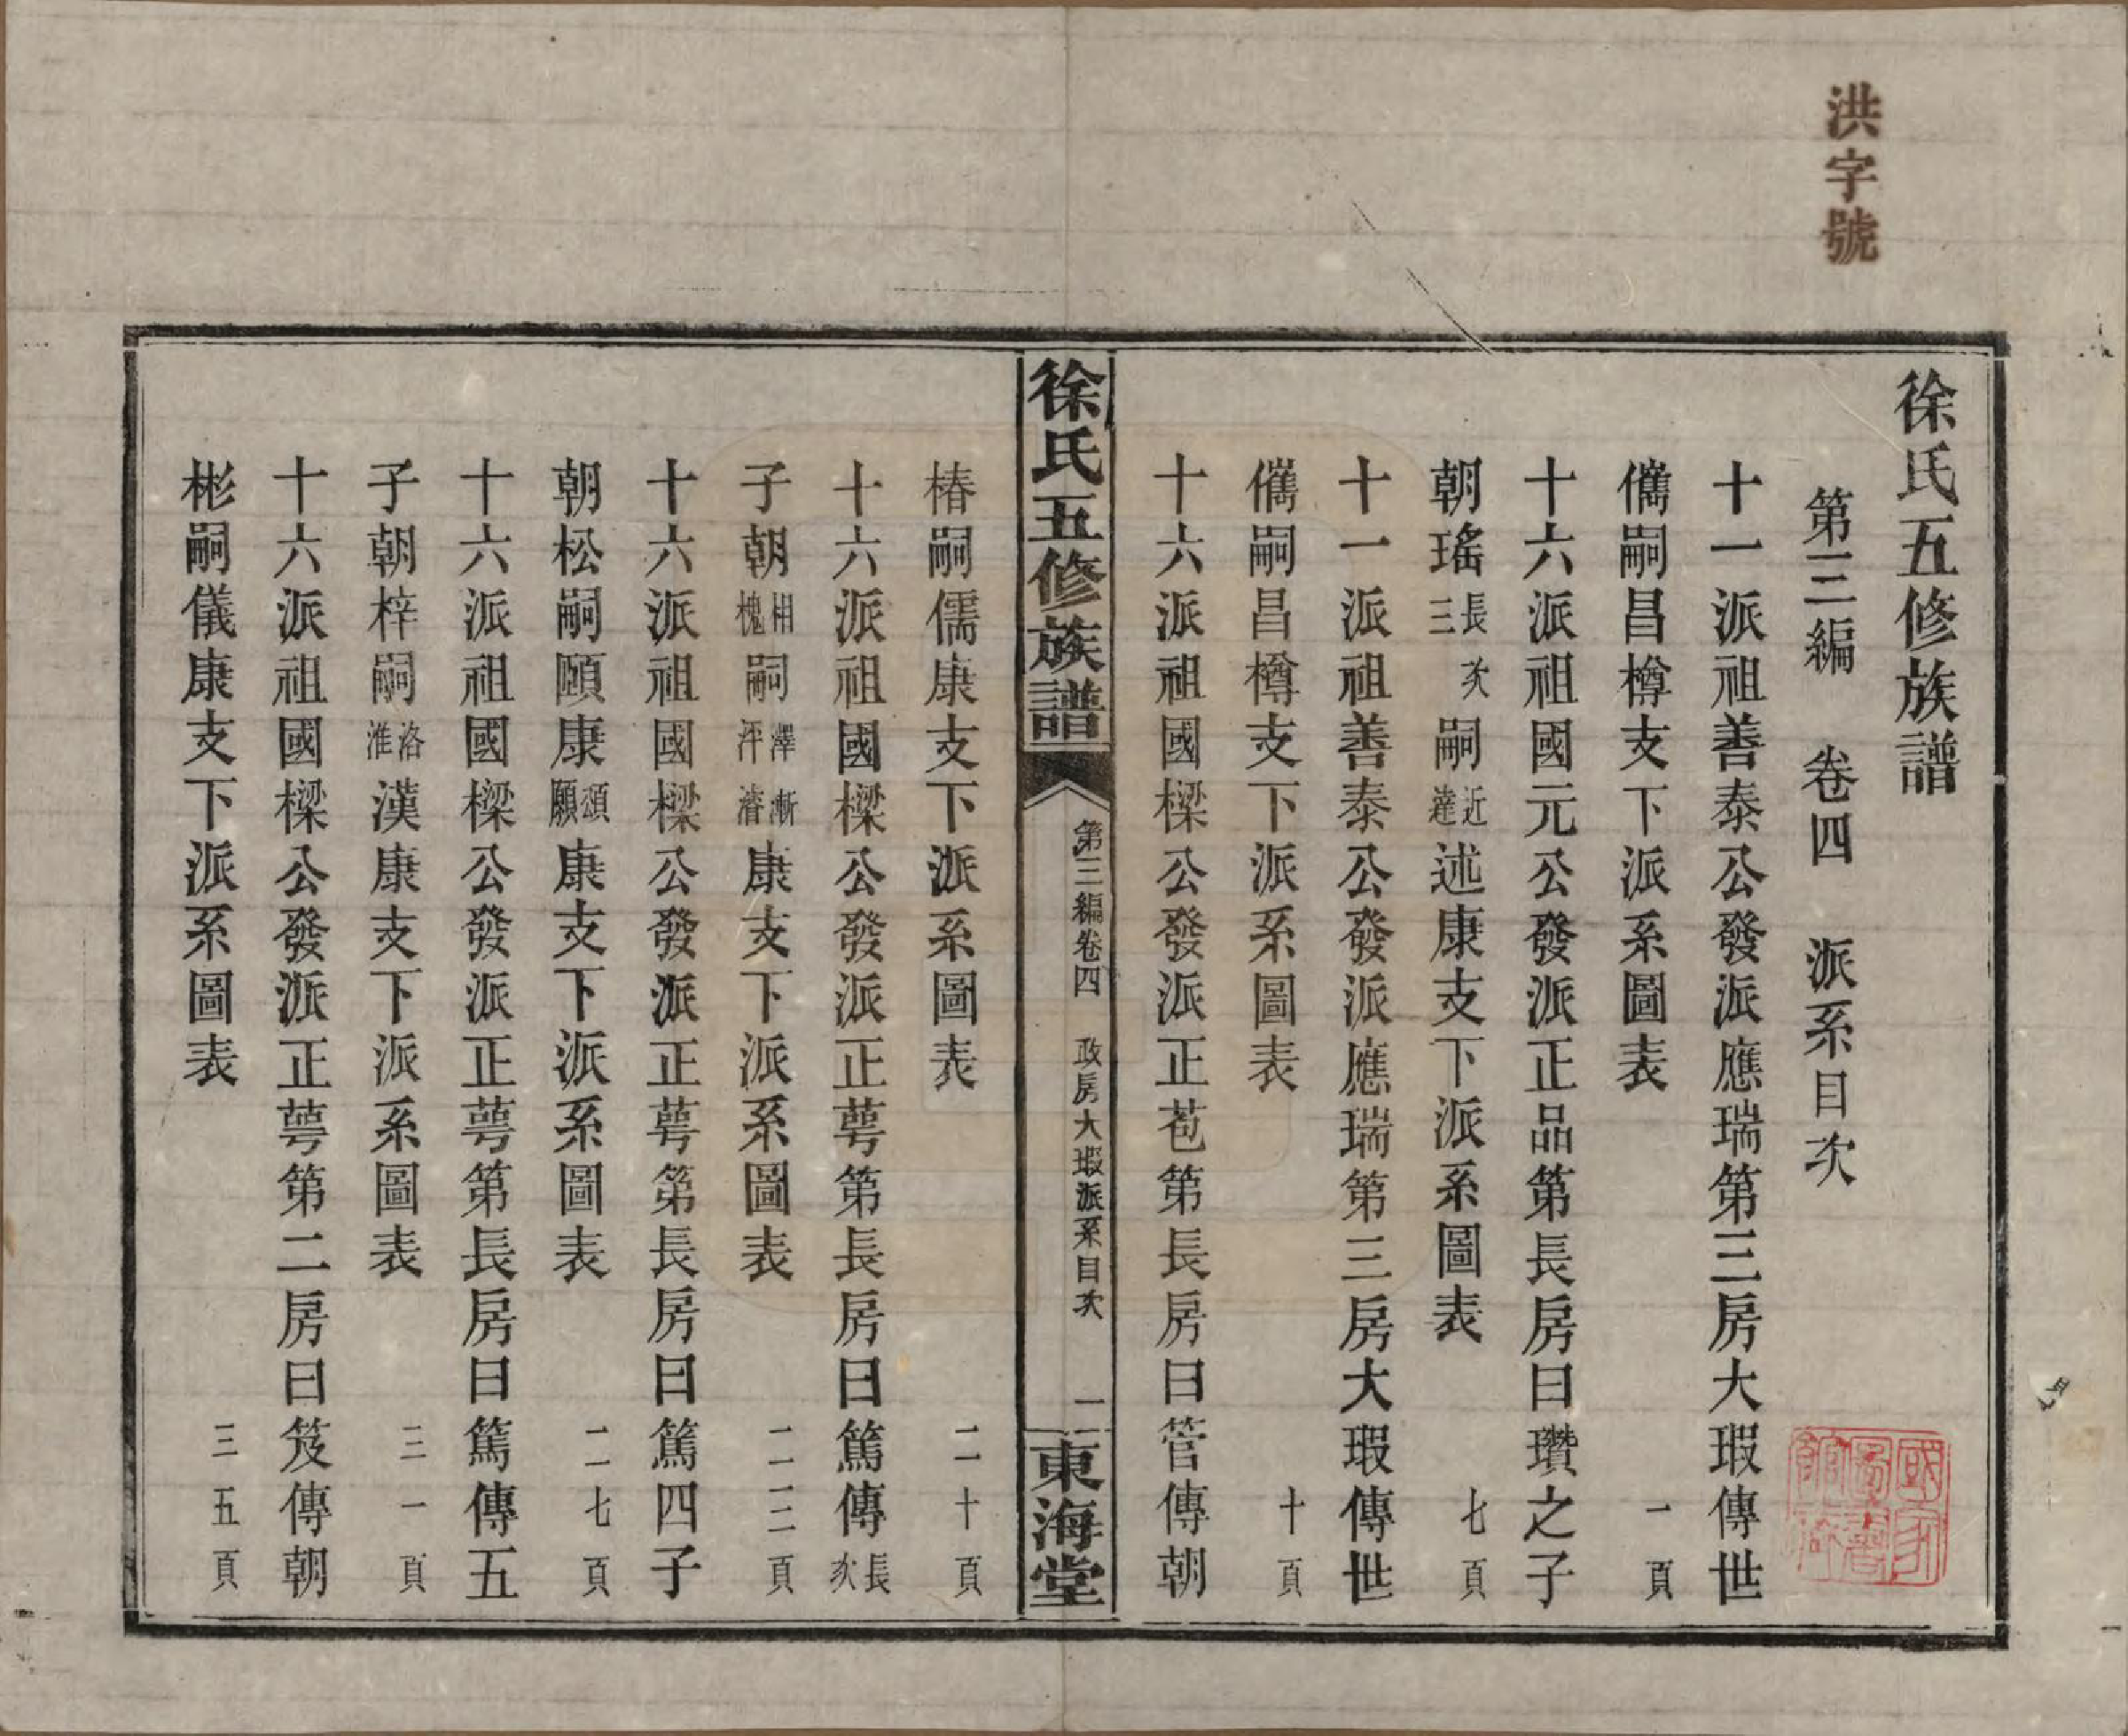 洪字號
徐氏五修族譜
第三編　卷四　派系目次
十一派祖善泰公發派應瑞第三房大瑕傳世
儶嗣昌樽支下派系圖表　一頁
十六派祖國元公發派正品第長房曰瓚之子
朝瑤長次三嗣近達述康支下派系圖表　七頁
十一派祖善泰公發派應瑞第三房大瑕傳世
儶嗣昌樽支下派系圖表　十頁
十六派祖國樑公發派正苞第長房曰管傳朝
徐氏五修族譜　第三編卷四　政房大瑕派系目次　一　東海堂
椿嗣儒康支下派系圖表　二十頁
十六派祖國樑公發派正萼第長房曰篤傳長次
子朝相槐嗣澤泙漸濬康支下派系圖表　二三頁
十六派祖國樑公發派正萼第長房曰篤四子
朝松嗣頤康頌願康支下派系圖表　二七頁
十六派祖國樑公發派正萼第長房曰篤傳五
子朝梓嗣洛淮漢康支下派系圖表　三一頁
十六派祖國樑公發派正萼第二房曰笈傳朝
彬嗣儀康支下派系圖表　三五頁